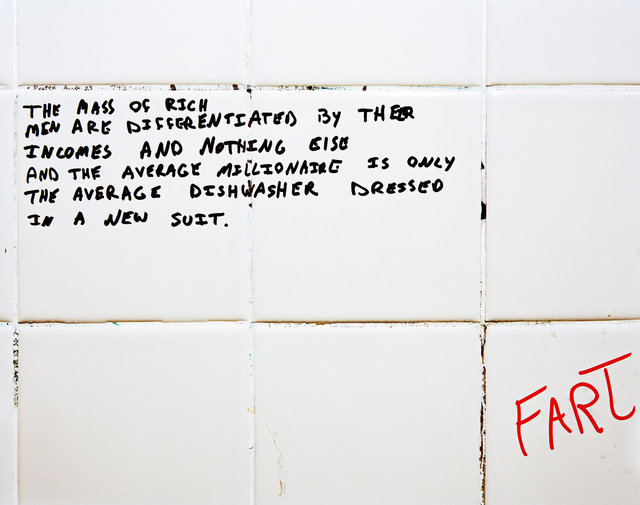 THE MASS OF RICH
MEN ARE DIFFERENTIATED BY THER
INCOMES AND NOTHING ELSE
AND THE AVERAGE MILLIONAIRE IS ONLY
THE AVERAGE DISHWASHER DRESSED
IN A NEW SUIT.
FART